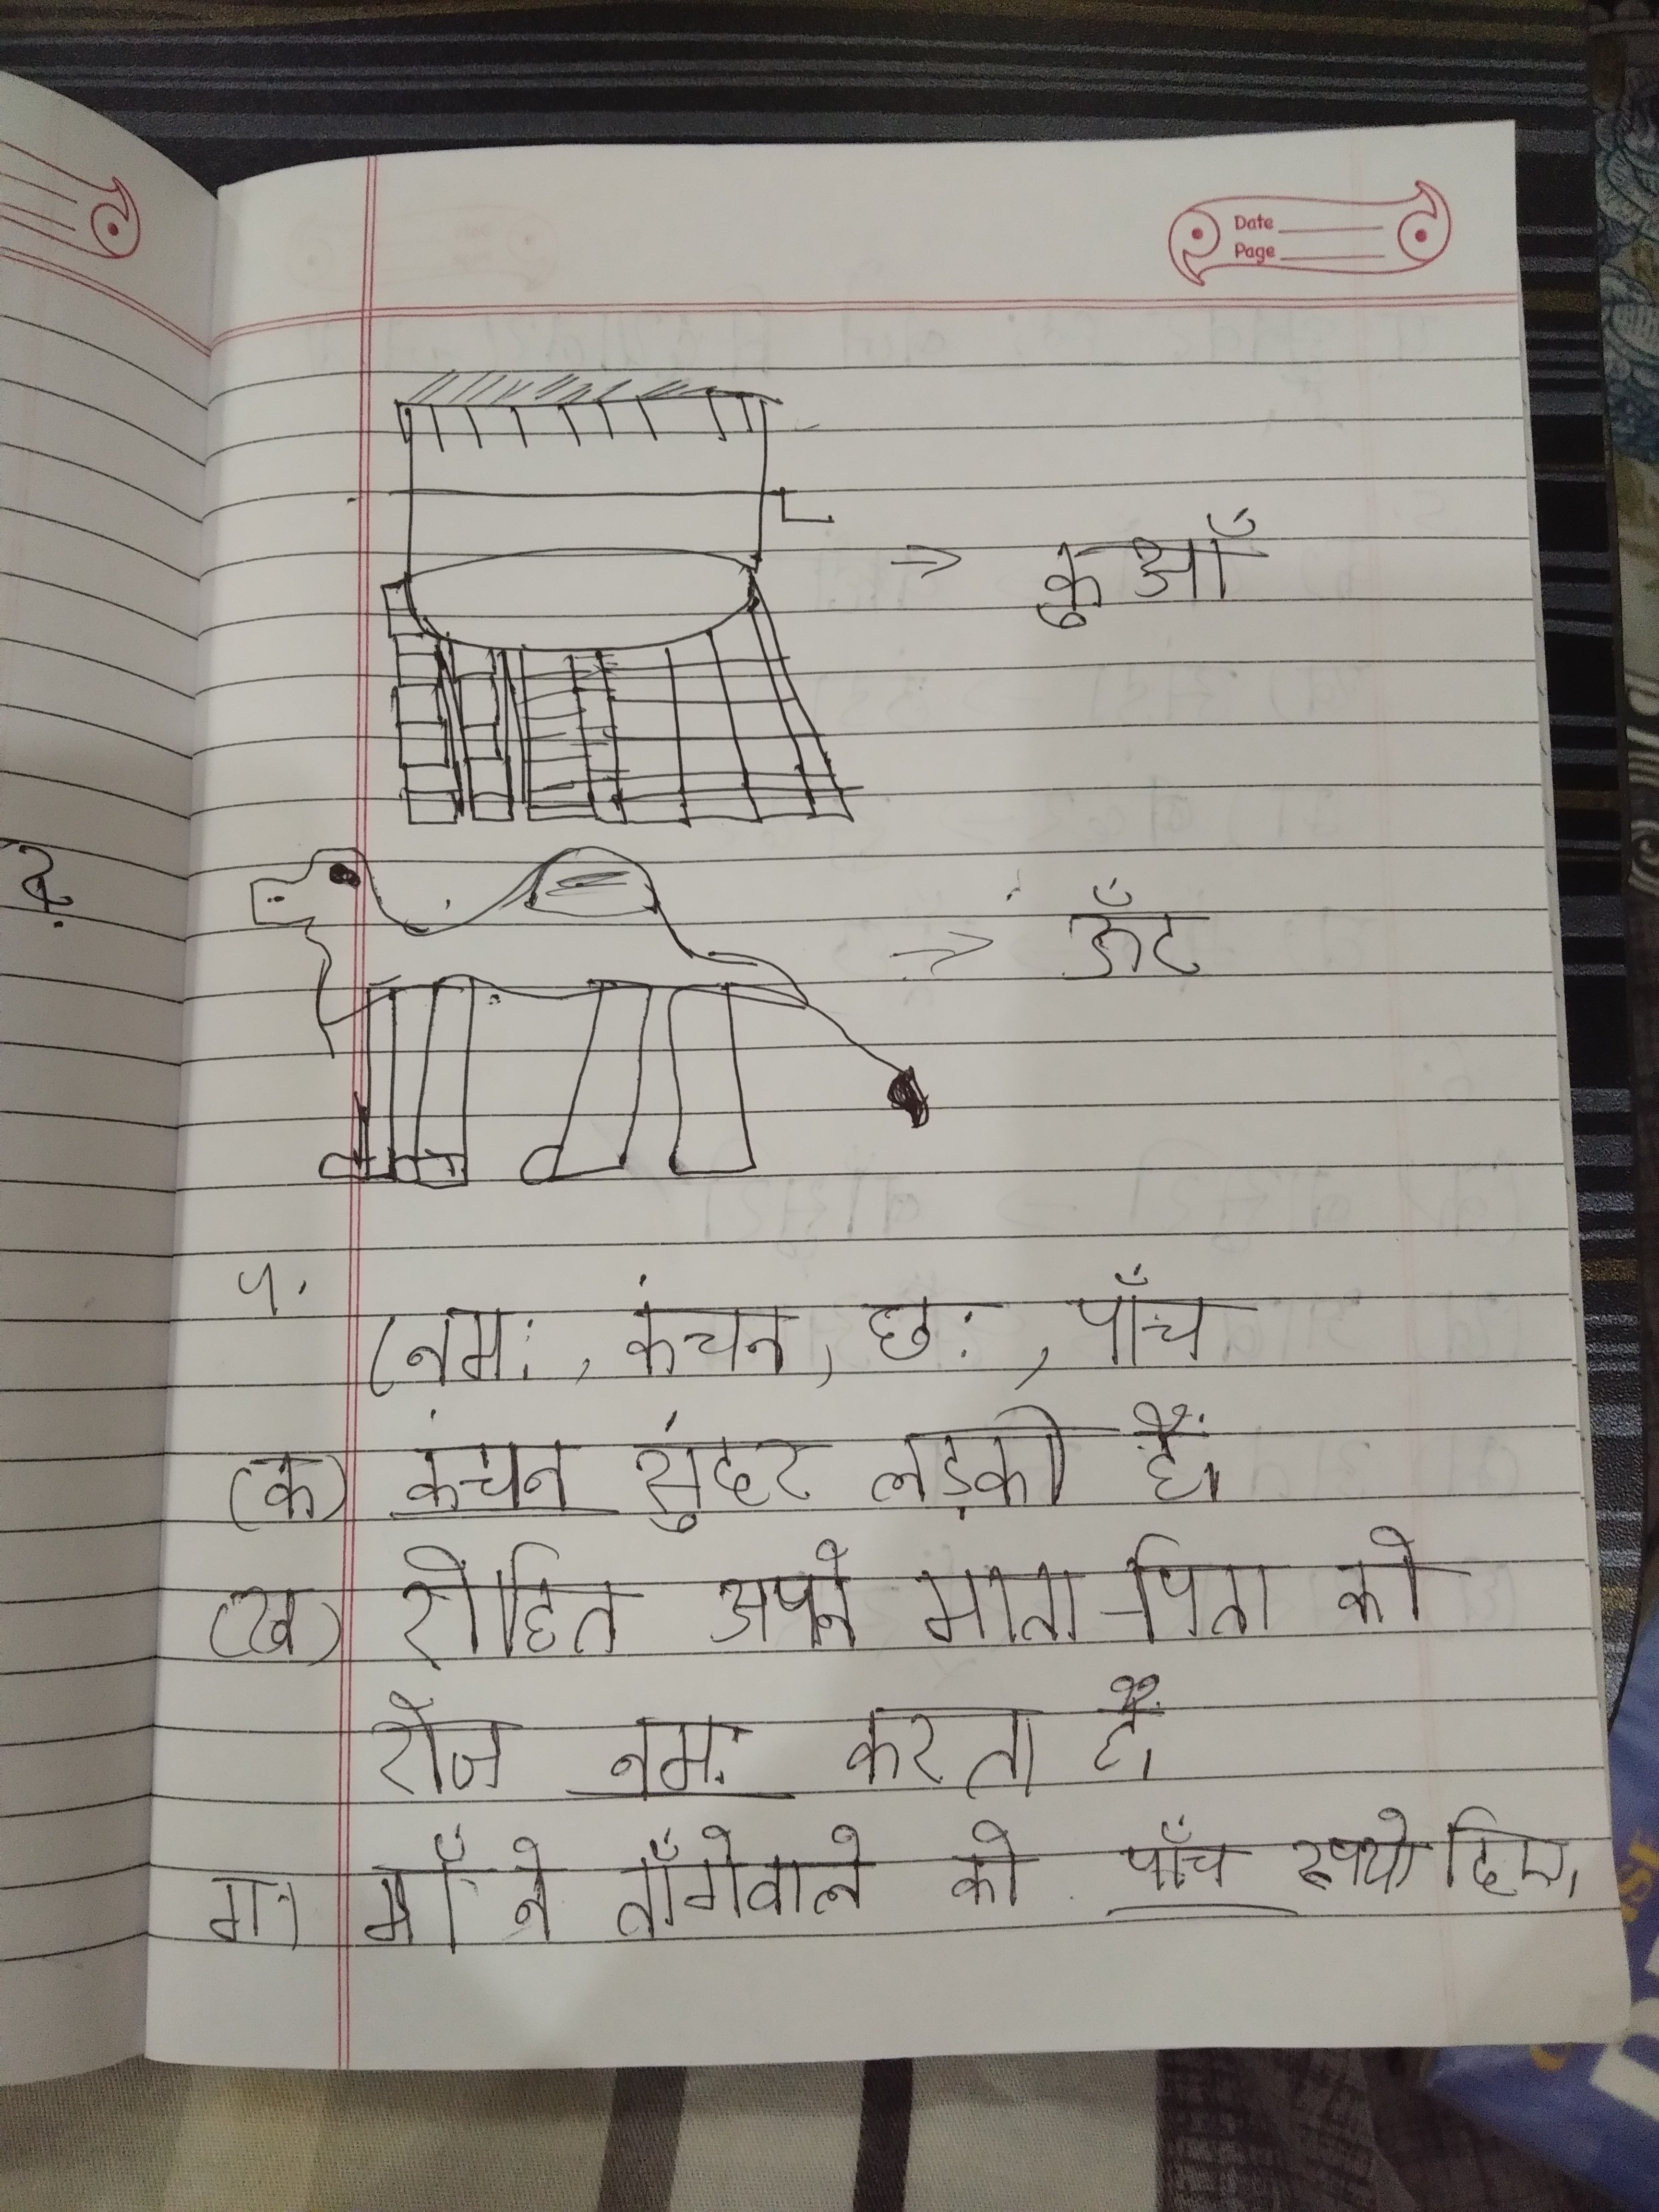 Date
Page
कुआँ
ऊँट
५.
(नमः, कंचन, छः, पाँच
(क) कंचन सुंदर लड़की हैं।
(ख) रोहित अपने माता-पिता को
रोज नमः करता हैं।
ग) माँ ने ताँगेवाले को पाँच रूपयो दिए।